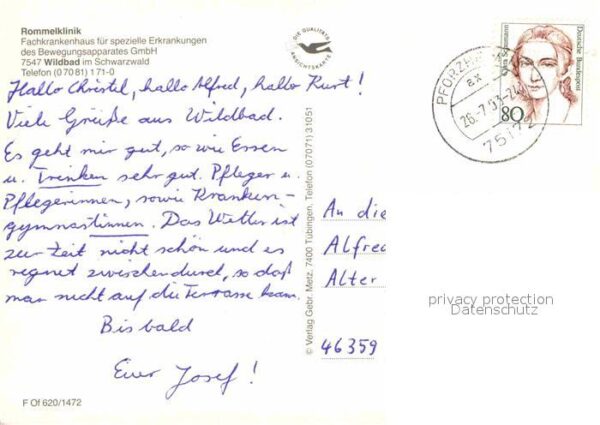 Rommelklinik
Fachkrankenhaus für spezielle Erkrankungen
des Bewegungsapparates GmbH
7547 Wildbad im Schwarzwald
Telefon (07081) 171-0
Hallo Christel, hallo Alfred, hallo Kurt!
Viele Grüße aus Wildbad.
Es geht mir gut, so wie Essen
u. Trinken sehr gut. Pfleger u.
Pflegerinnen, sowie Kranken-
gymnastinnen. Das Wetter ist
zur Zeit nicht schön und es
regnet zwischendurch, so daß
man nicht auf die Terrasse kann.
Bis bald
Euer Josef!
F Of 620/1472
DIE QUALITÄTS
ANSICHTSKARTE
© Verlag Gebr. Metz, 7400 Tübingen, Telefon (07071) 31051
PFORZH
26.-7.93
75172
Deutsche Bundespost
80
An die
Alfre
Alter
46359
privacy protection
Datenschutz